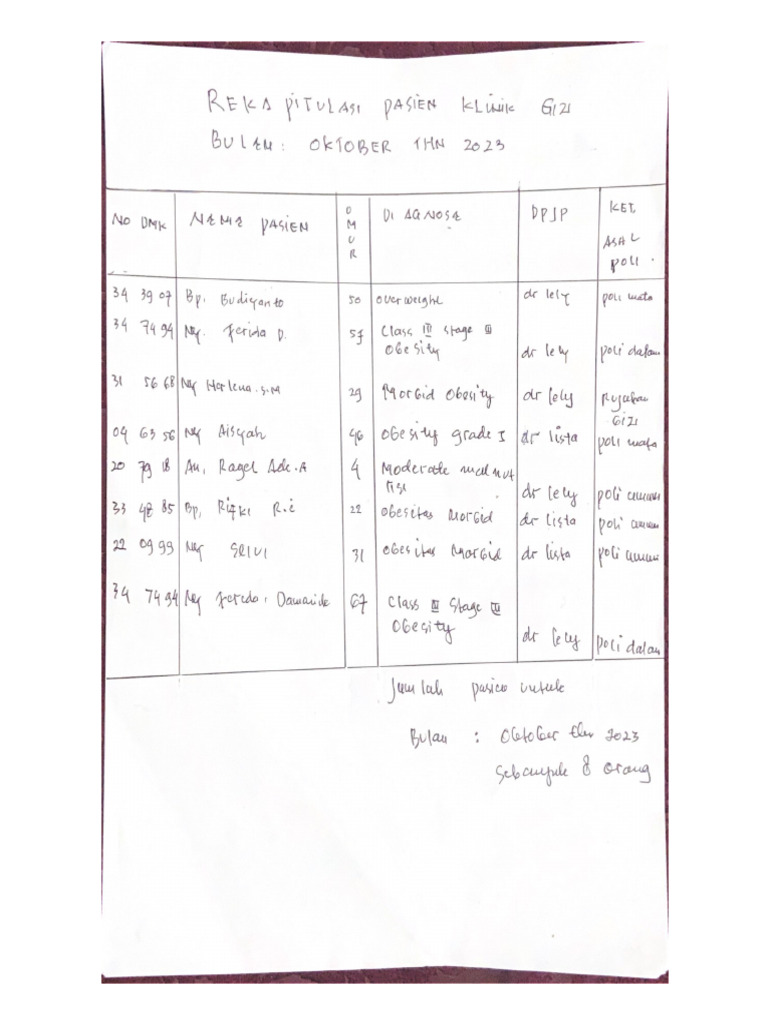 REKAPITULASI PASIEN KLINIK GIZI
BULAN: OKTOBER THN 2023
NO DMK NAMA PASIEN OMUR DIAGNOSA DPJP KET ASAL POLI.
34 39 07 Bp. Budiyanto 50 overweight dr lely poli mata
34 74 94 Ny. Ferida D. 57 Class III stage III
Obesity dr lely poli dalam
31 56 68 Ny Herlena.S.M 29 Morbid Obesity dr lely Rujukan
GIZI
04 63 56 Ny Aisyah 46 Obesity grade I dr lista poli mata
20 79 18 An, Ragel Ade.A 4 Moderate malnut
risi dr lely poli umum
33 48 85 Bp, Rizki R.i 22 Obesitas Morbid dr lista poli umum
22 09 99 Ny SRIVI 31 Obesitas Morbid dr lista poli umum
34 74 94 Ny Ferida. Damanik 67 Class III Stage III
Obesity dr lely poli dalam
Jumlah pasien untuk
Bulan : Oktober thn 2023
Sebanyak 8 orang